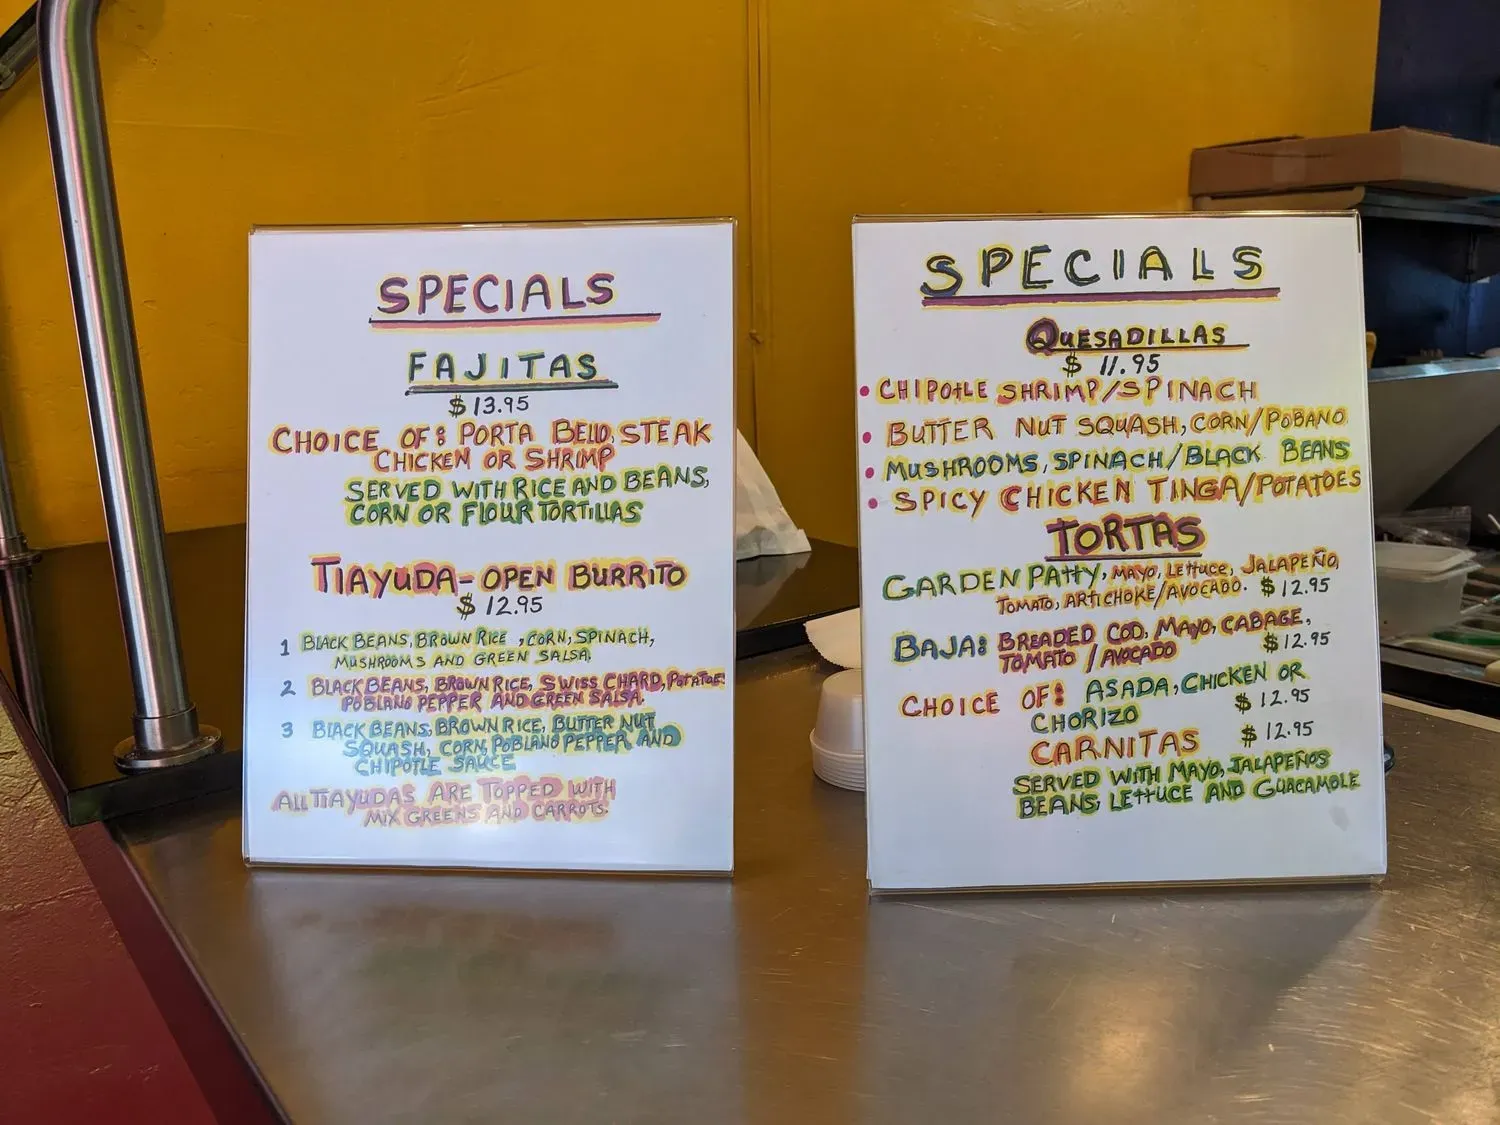 SPECIALS
FAJITAS
$ 13.95
CHOICE OF: PORTA BELLO, STEAK
CHICKEN OR SHRIMP
SERVED WITH RICE AND BEANS,
CORN OR FLOUR TORTILLAS
TIAYUDA - OPEN BURRITO
$ 12.95
1 BLACK BEANS, BROWN RICE, CORN, SPINACH,
MUSHROOMS AND GREEN SALSA.
2 BLACK BEANS, BROWN RICE, SWISS CHARD, POTATOES
POBLANO PEPPER AND GREEN SALSA.
3 BLACK BEANS, BROWN RICE, BUTTER NUT
SQUASH, CORN, POBLANO PEPPER AND
CHIPOTLE SAUCE
ALL TIAYUDAS ARE TOPPED WITH
MIX GREENS AND CARROTS.
SPECIALS
QUESADILLAS
$ 11.95
• CHIPOTLE SHRIMP/SPINACH
• BUTTER NUT SQUASH, CORN/POBANO
• MUSHROOMS, SPINACH/BLACK BEANS
• SPICY CHICKEN TINGA/POTATOES
TORTAS
GARDEN PATTY, MAYO, LETTUCE, JALAPEÑO,
TOMATO, ARTICHOKE/AVOCADO. $ 12.95
BAJA: BREADED COD, MAYO, CABAGE,
TOMATO / AVOCADO $ 12.95
CHOICE OF: ASADA, CHICKEN OR
CHORIZO $ 12.95
CARNITAS $ 12.95
SERVED WITH MAYO, JALAPEÑOS
BEANS, LETTUCE AND GUACAMOLE